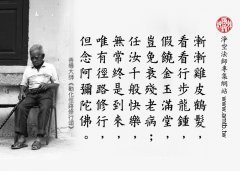 漸漸雞皮鶴髮，
看看行步龍鍾，
假饒金玉滿堂，
豈免衰殘老病；
任汝千般快樂，
無常終是到來，
唯有徑路修行，
但念阿彌陀佛。
淨空法師專集網站
www.amtb.tw